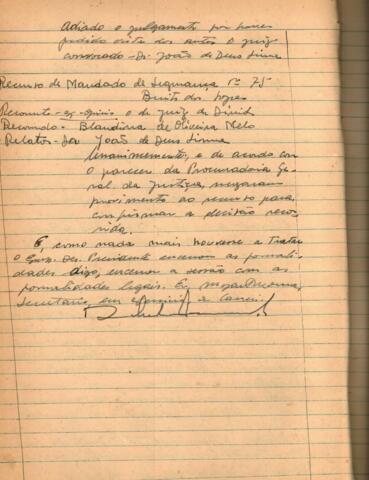 Adiado o julgamento por haver
pedido vista dos autos o juiz
convocado - Dr. João de Deus Lima
Recurso de Mandado de Segurança nº 75
Recorrente - ex-officio o dr. juiz de Direito
Recorrido - Blandina de Oliveira Melo
Relator - Dr. João de Deus Lima
Unanimemente, e de acordo com
o parecer da Procuradoria Ge-
ral da Justiça, negaram
provimento ao recurso para,
confirmar a decisão recor-
rida.
E, como nada mais houvesse a tratar
o Exmo. Des. Presidente encerrou as formali-
dades digo, encerrou a sessão com as
formalidades legais. E,
Secretário, em